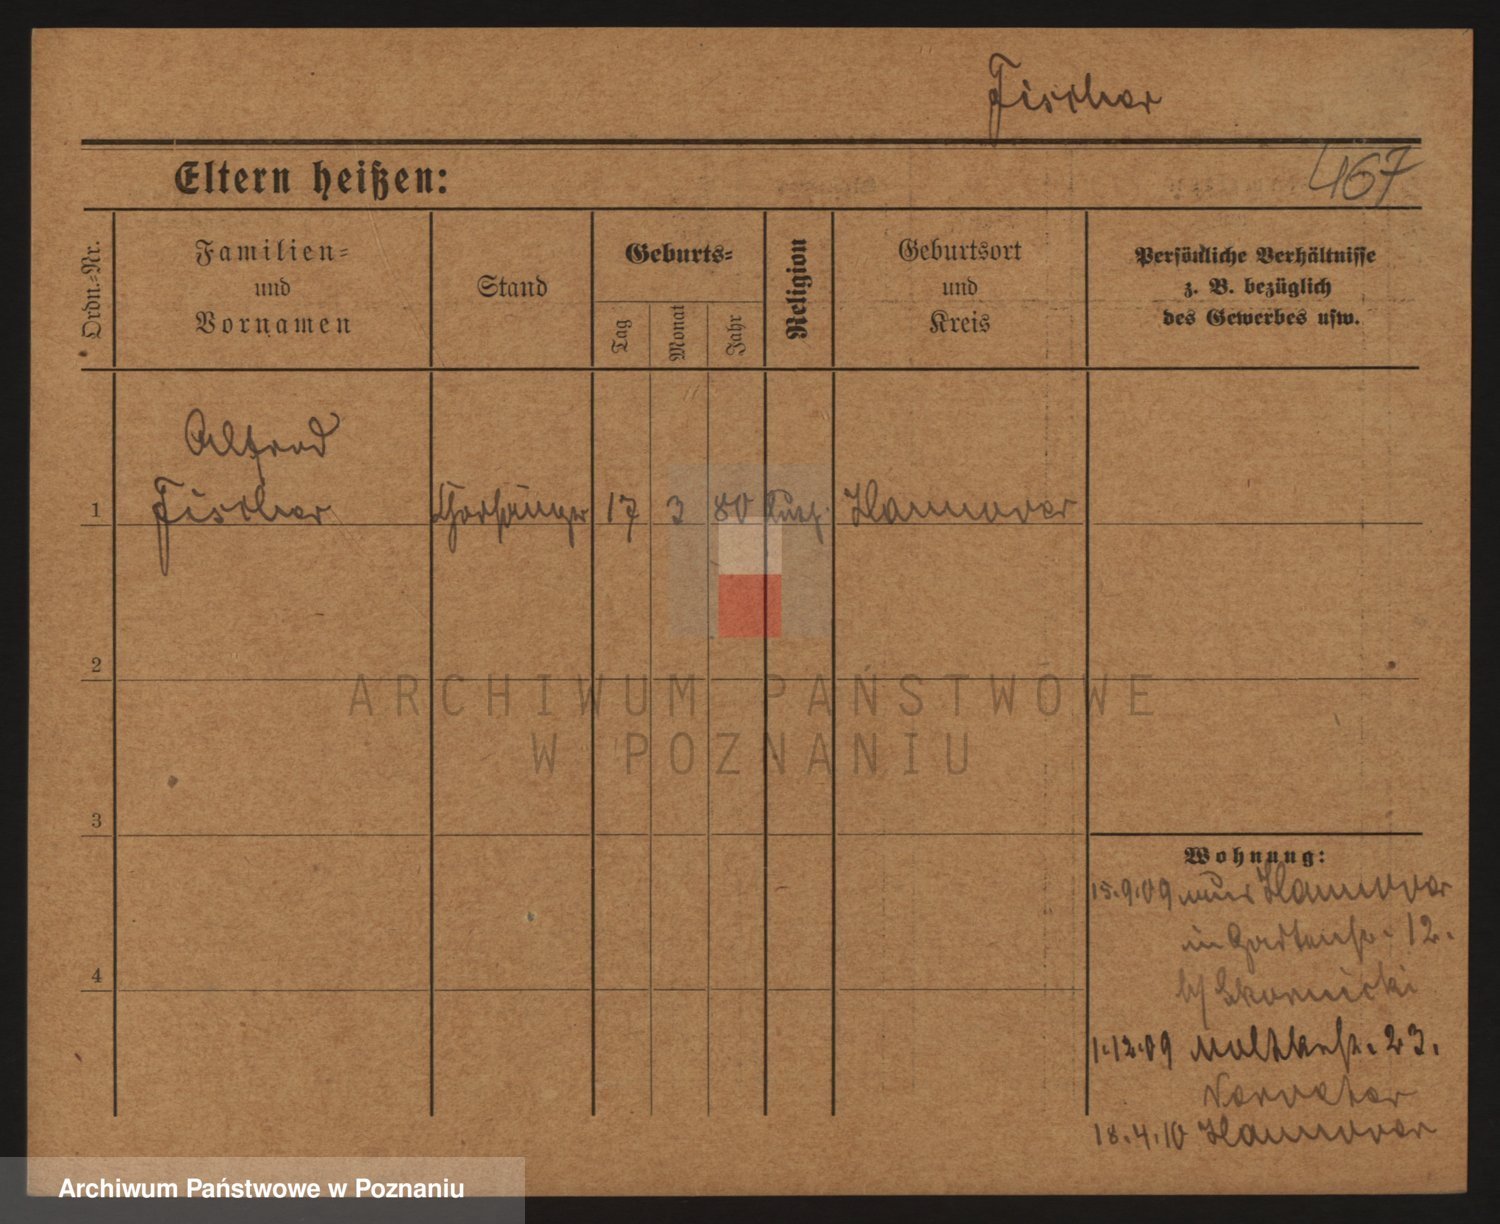 Fischer
467
Eltern heißen:
Ordn.-Nr.
Familien-
und
Vornamen
Stand
Geburts-
Tag
Monat
Jahr
Religion
Geburtsort
und
Kreis
Persönliche Verhältnisse
z. B. bezüglich
des Gewerbes usw.
Alfred
1 Fischer Chorsänger 17 3 80 Hannover
2
3
4
Wohnung:
15.9.09 aus Hannover
in Gartenstr. 12.
b/ Skornicki
1.12.09 Moltkestr. 23.
18.4.10 Hannover
ARCHIWUM PAŃSTWOWE
W POZNANIU
Archiwum Państwowe w Poznaniu